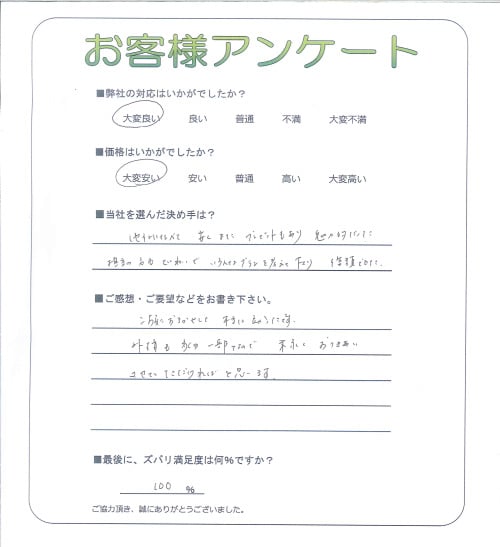 お客様アンケート
■弊社の対応はいかがでしたか？
大変良い 良い 普通 不満 大変不満
■価格はいかがでしたか？
大変安い 安い 普通 高い 大変高い
■当社を選んだ決め手は？
安く またプレゼントもあり 魅力的だった
担当の方も プランを考えて下さり 信頼できた。
■ご感想・ご要望などをお書き下さい。
本当に
外構も 家の一部なので 末永く おつきあい
させていただければと思います。
■最後に、ズバリ満足度は何％ですか？
100 %
ご協力頂き、誠にありがとうございました。